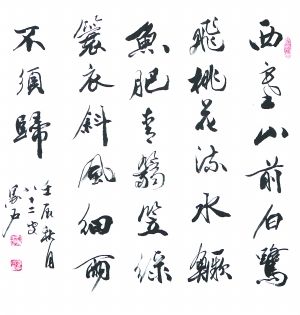 西塞山前白鷺
飛桃花流水鱖
魚肥青篛笠綠
簑衣斜風細雨
不須歸
壬辰秋月
八十二叟